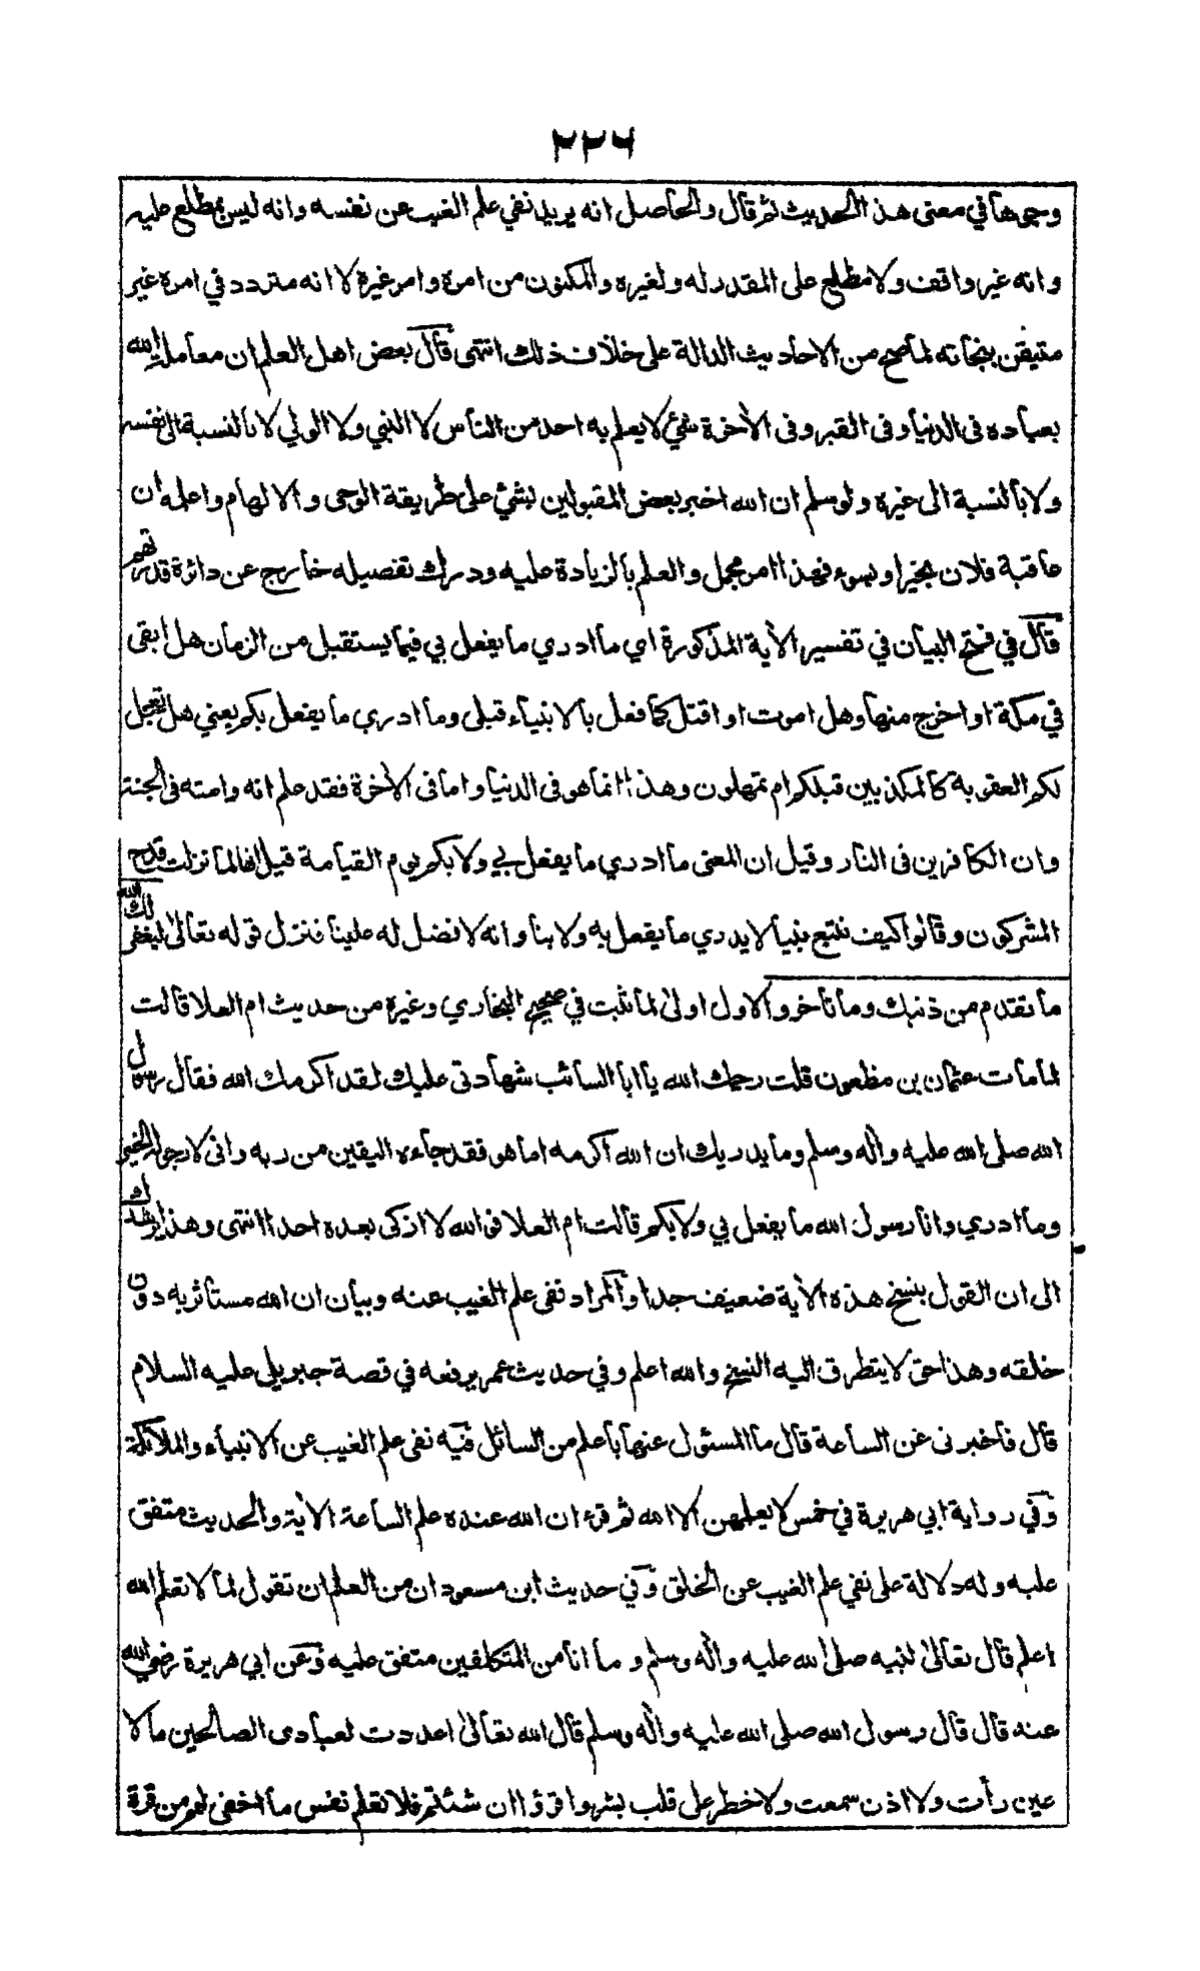 ٢٢٦
وجوها في معنى هذا الحديث ثم قال والحاصل انه يريد نفي علم الغيب عن نفسه وانه ليس بمطلع عليه
وانه غير واقف ولا مطلع على المقدر له ولغيره والمكنون من امره وامر غيره لا انه متردد في امره غير
متيقن بنجاته لما صح من الاحاديث الدالة على خلاف ذلك انتهى قال بعض اهل العلم ان معاملة الله
بعباده فى الدنيا وفى القبر وفى الآخرة شئ لا يعلم به احد من الناس لا النبي ولا الولي لا بالنسبة الى نفسه
ولا بالنسبة الى غيره ولو سلم ان الله اخبر بعض المقبولين بشئ على طريقة الوحى والالهام واعلمه ان
عاقبة فلان بخير او بسوء فهذا امر مجمل والعلم بالزيادة عليه ودرك تفصيله خارج عن دائرة قدرتهم
قال في فتح البيان في تفسير الآية المذكورة اي ما ادري ما يفعل بي فيما يستقبل من الزمان هل ابقى
في مكة او اخرج منها وهل اموت او اقتل كما فعل بالانبياء قبلى وما ادري ما يفعل بكم يعني هل تعجل
لكم العقوبة كالمكذبين قبلكم ام تمهلون وهذا انما هو فى الدنيا واما فى الآخرة فقد علم انه وامته فى الجنة
وان الكافرين فى النار وقيل ان المعنى ما ادري ما يفعل بي ولا بكم يوم القيامة قيل انها لما نزلت فرح
المشركون وقالوا كيف نتبع نبيا لا يدري ما يفعل به ولا بنا وانه لا فضل له علينا فنزل قوله تعالى ليغفر لك الله
ما تقدم من ذنبك وما تأخر والاول اولى لما ثبت في صحيح البخاري وغيره من حديث ام العلا قالت
لما مات عثمان بن مظعون قلت رحمك الله يا ابا السائب شهادتى عليك لقد اكرمك الله فقال رسول
الله صلى الله عليه وآله وسلم وما يدريك ان الله اكرمه اما هو فقد جاءه اليقين من ربه وانى لارجو له الخير
وما ادري وانا رسول الله ما يفعل بي ولا بكم قالت ام العلا فوالله لا ازكى بعده احدا انتهى وهذا يرشدك
الى ان القول بنسخ هذه الآية ضعيف جدا والمراد نفى علم الغيب عنه وبيان ان الله مستأثر به دون
خلقه وهذا حق لا يتطرق اليه النسخ والله اعلم وفي حديث عمر يرفعه في قصة جبريل عليه السلام
قال فاخبرنى عن الساعة قال ما المسئول عنها باعلم من السائل فيه نفى علم الغيب عن الانبياء والملائكة
وفي رواية ابي هريرة في خمس لا يعلمهن الا الله ثم قرء ان الله عنده علم الساعة الآية والحديث متفق
عليه وله دلالة على نفي علم الغيب عن الخلق وفي حديث ابن مسعود ان من العلم ان تقول لما لا تعلم الله
اعلم قال تعالى لنبيه صلى الله عليه وآله وسلم وما انا من المتكلفين متفق عليه وعن ابي هريرة رضي الله
عنه قال قال رسول الله صلى الله عليه وآله وسلم قال الله تعالى اعددت لعبادى الصالحين ما لا
عين رأت ولا اذن سمعت ولا خطر على قلب بشر واقرؤا ان شئتم فلا تعلم نفس ما اخفى لهم من قرة